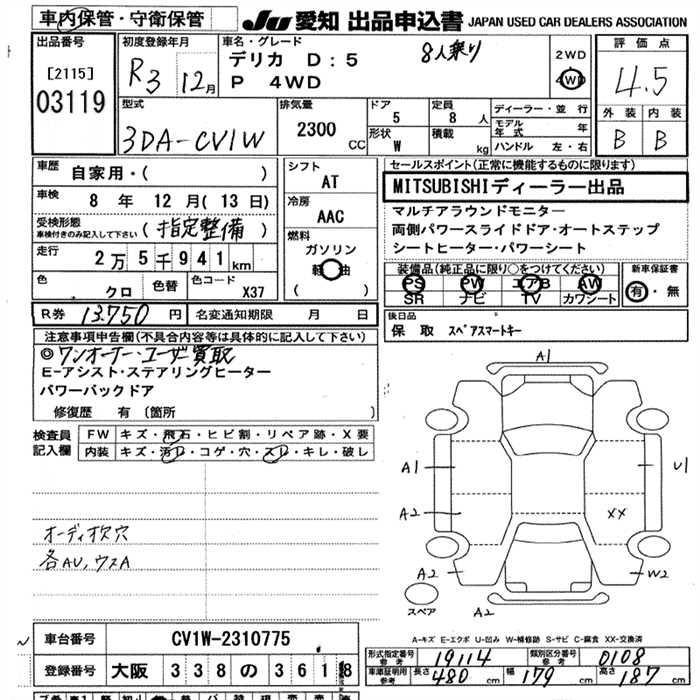 車内保管・守衛保管
JU 愛知 出品申込書 JAPAN USED CAR DEALERS ASSOCIATION
出品番号
[2115]
03119
初度登録年月
R3 12月
車名・グレード
デリカ D:5
P 4WD
8人乗り
2WD
4WD
評価点
4.5
外装 内装
B B
型式
3DA-CV1W
排気量
2300 CC
ドア
5
形状
W
定員
8 人
積載
kg
ディーラー・並行
モデル年式 年
ハンドル 左・右
車歴
自家用・( )
車検
8 年 12 月 (13 日)
受検形態
車検付きのみ記入して下さい
(指定整備)
走行
2万5千941km
色
クロ
色替
色コード
X37
シフト
AT
冷房
AAC
燃料
ガソリン
軽油
( )
セールスポイント(正常に機能するものに限ります)
MITSUBISHIディーラー出品
マルチアラウンドモニター
両側パワースライドドア・オートステップ
シートヒーター・パワーシート
装備品(純正品に限り○をつけてください)
PS PW エアB AW
SR ナビ TV カワシート
新車保証書
有・無
R券 13,750 円
名変通知期限 月 日
後日品
保取 スペアスマートキー
注意事項申告欄(不具合内容等は具体的に記入して下さい)
◎ワンオーナー・ユーザ買取
E-アシスト・ステアリングヒーター
パワーバックドア
修復歴 有 〔箇所 〕
検査員記入欄
FW キズ・飛石・ヒビ割・リペア跡・X要
内装 キズ・汚レ・コゲ・穴・スレ・キレ・破レ
オーディオ欠穴
各AU,ウスA
A1
A1
U1
A2
XX
A2
W2
スペア
A2
A-キズ E-エクボ U-凹み W-補修跡 S-サビ C-腐食 XX-交換済
車台番号
CV1W-2310775
登録番号
大阪 338 の 3618
形式指定番号
参考
19114
類別区分番号
参考
0108
車庫証明用
参考
長さ 480 cm 幅 179 cm 高さ 187 cm